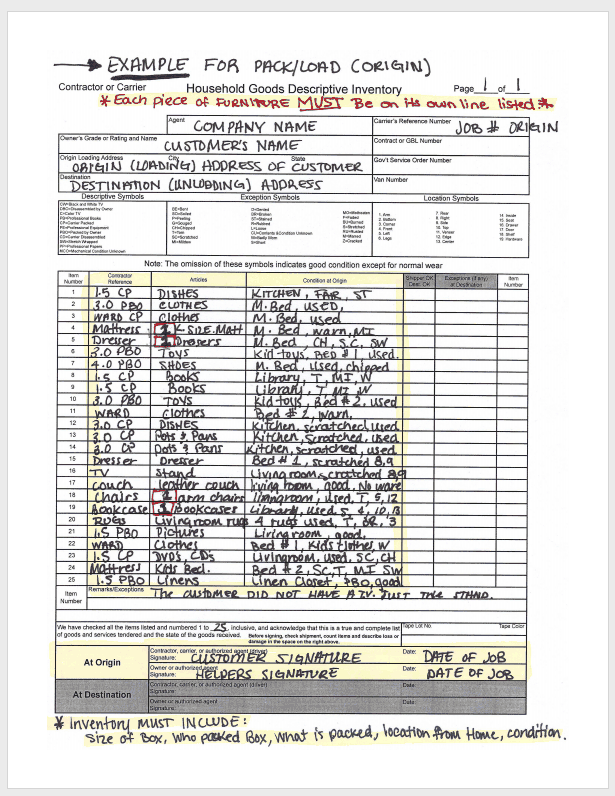 EXAMPLE FOR PACK/LOAD (ORIGIN)
Contractor or Carrier Household Goods Descriptive Inventory Page 1 of 1
* Each piece of FURNITURE MUST Be on its own line listed *
Agent COMPANY NAME Carrier's Reference Number JOB # ORIGIN
Owner's Grade or Rating and Name CUSTOMER'S NAME Contract or GBL Number
Origin Loading Address City State Gov't Service Order Number
ORIGIN (LOADING) ADDRESS OF CUSTOMER
Destination Van Number
DESTINATION (UNLOADING) ADDRESS
Descriptive Symbols Exception Symbols Location Symbols
Note: The omission of these symbols indicates good condition except for normal wear
Item Number Contractor Reference Articles Condition at Origin Shipper OK Dest. OK Exceptions (if any) at Destination Item Number
1 1.5 CP DISHES KITCHEN, FAIR, ST
2 3.0 PBO CLOTHES M. Bed, USED,
3 WARD CP Clothes M. Bed, used
4 Mattress 1 K-SIZE.Matt M. Bed, warn, MI
5 Dresser 1 Drasers M. Bed, CH, S.C, SW
6 3.0 PBO TOYS Kid toys, BED # 1, used.
7 4.0 PBO SHOES M. Bed, Used, chipped
8 1.5 CP Books Library, T, MI, W
9 1.5 CP Books Library, T MI W
10 3.0 PBO TOYS Kid toys, Bed # 2, used
11 WARD Clothes Bed # 2, warn,
12 3.0 CP DISHES Kitchen, scratched, used
13 3.0 CP Pots & Pans Kitchen, Scratched, used
14 3.0 CP Pots & Pans Kitchen, scratched, used
15 Dresser Dresser Bed # 1, scratched 8,9
16 TV Stand Living room, scratched 8,9
17 couch leather couch living room, good, No ware
18 Chairs 1 arm chairs livingroom, used, T, 5, 12
19 Bookcase 1 bookcases Library, used S, 4, 10, 13
20 RUGS Living room rugs 4 rugs used, T, BR, 3
21 1.5 PBO Pictures Living room, good,
22 WARD Clothes Bed # 1, Kids clothes, W
23 1.5 CP DVD's, CD's Livingroom, used, SC, CH
24 Mattress Kids Bed. Bed # 2, SC, T, MI SW
25 1.5 PBO Linens Linen Closet, PBO, good
Item Number Remarks/Exceptions THE CUSTOMER DID NOT HAVE A TV. JUST THE STAND.
We have checked all the items listed and numbered 1 to 25, inclusive, and acknowledge that this is a true and complete list Tape Lot No. Tape Color
of goods and services tendered and the state of the goods received. Before signing, check shipment, count items and describe loss or
damage in the space on the right above.
At Origin Contractor, carrier, or authorized agent (driver) Signature: CUSTOMER SIGNATURE Date: DATE OF JOB
Owner or authorized agent Signature: HELPERS SIGNATURE Date: DATE OF JOB
At Destination Contractor, carrier, or authorized agent (driver) Signature: Date:
Owner or authorized agent Signature: Date:
* Inventory MUST INCLUDE:
Size of Box, Who packed Box, What is packed, location from Home, condition.